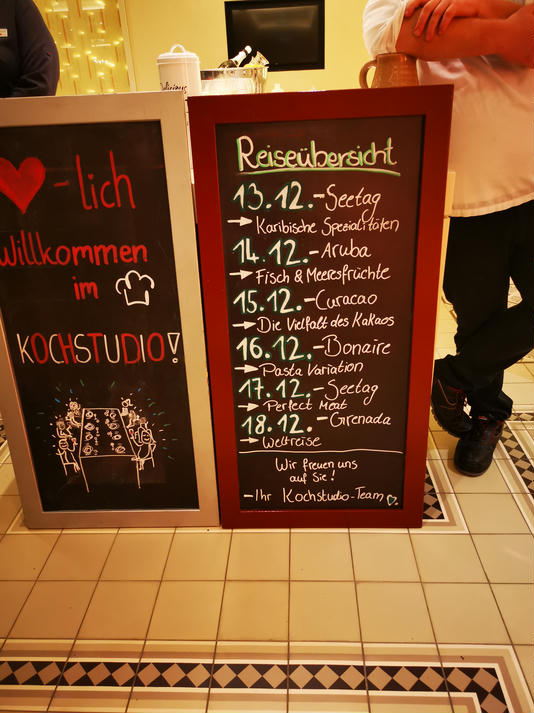 ❤-lich
Willkommen
im
KOCHSTUDIO!
Reiseübersicht
13.12.-Seetag
→ Karibische Spezialitäten
14.12.-Aruba
→ Fisch & Meeresfrüchte
15.12.-Curacao
→ Die Vielfalt des Kakaos
16.12.-Bonaire
→ Pasta Variation
17.12.-Seetag
→ Perfect Meat
18.12.-Grenada
→ Weltreise
Wir freuen uns
auf Sie!
-Ihr Kochstudio-Team